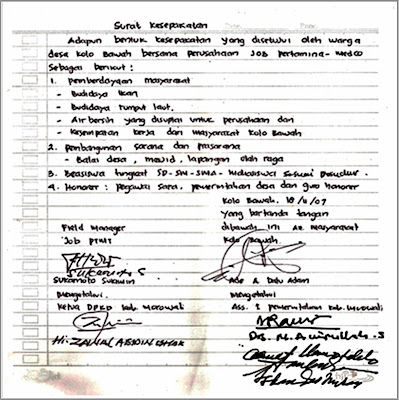 Surat Kesepakatan
Adapun bentuk kesepakatan yang disetujui oleh warga
desa Kolo Bawah bersama perusahaan JOB Pertamina-Medco
Sebagai berikut :
1. pemberdayaan masyarakat
- Budidaya Ikan
- Budidaya rumput laut.
- Air bersih yang disuplai untuk perusahaan dan
- Kesempatan kerja dari Masyarakat Kolo Bawah
2. pembangunan sarana dan prasarana
- Balai desa, masjid, lapangan olah raga
3. Beasiswa tingkat SD-SMP-SMA-Mahasiswa Sesuai
4. Honorer : pegawai sara, pemerintahan desa dan guru honorer
Kolo Bawah. 18/11/07
Yang bertanda tangan
Field Manager
dibawah ini An. masyarakat
Job PTMTS
Kolo Bawah.
Sukamoto
Ade A Dalu Adam
Mengetahui.
Mengetahui
Ketua DPRD Kab. Morowali
Ass. I pemerintahan Kab. Morowali
Drs. M. Amirullah. S
Hi. ZAINAL ABIDIN ISHAK